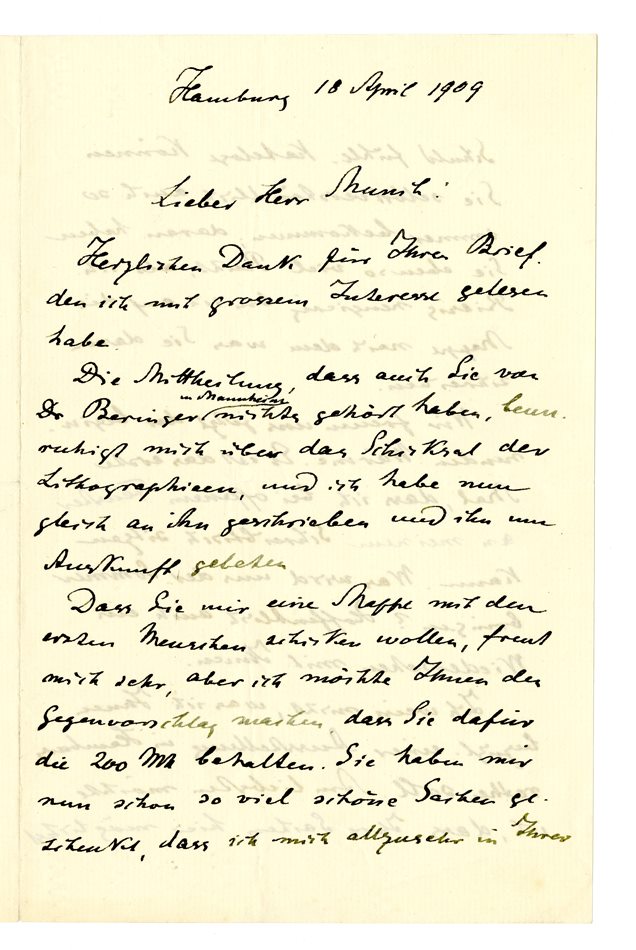 Hamburg 18 April 1909
Lieber Herr Munch!
Herzlichen Dank für Ihren Brief.
den ich mit grossem Interesse gelesen
habe.
Die Mittheilung, dass auch Sie von
in Mannheim
Dr Beringer nichts gehört haben, beun-
ruhigt mich über das Schicksal der
Lithographieen, und ich habe nun
gleich an ihn geschrieben und ihn um
Auskunft gebeten
Dass Sie mir eine Mappe mit den
ersten Menschen schicken wollen, freut
mich sehr, aber ich möchte Ihnen den
Gegenvorschlag machen dass Sie dafür
die 200 Mk behalten. Sie haben mir
nun schon so viel schöne Sachen ge-
schenkt, dass ich mich allzusehr in Ihrer